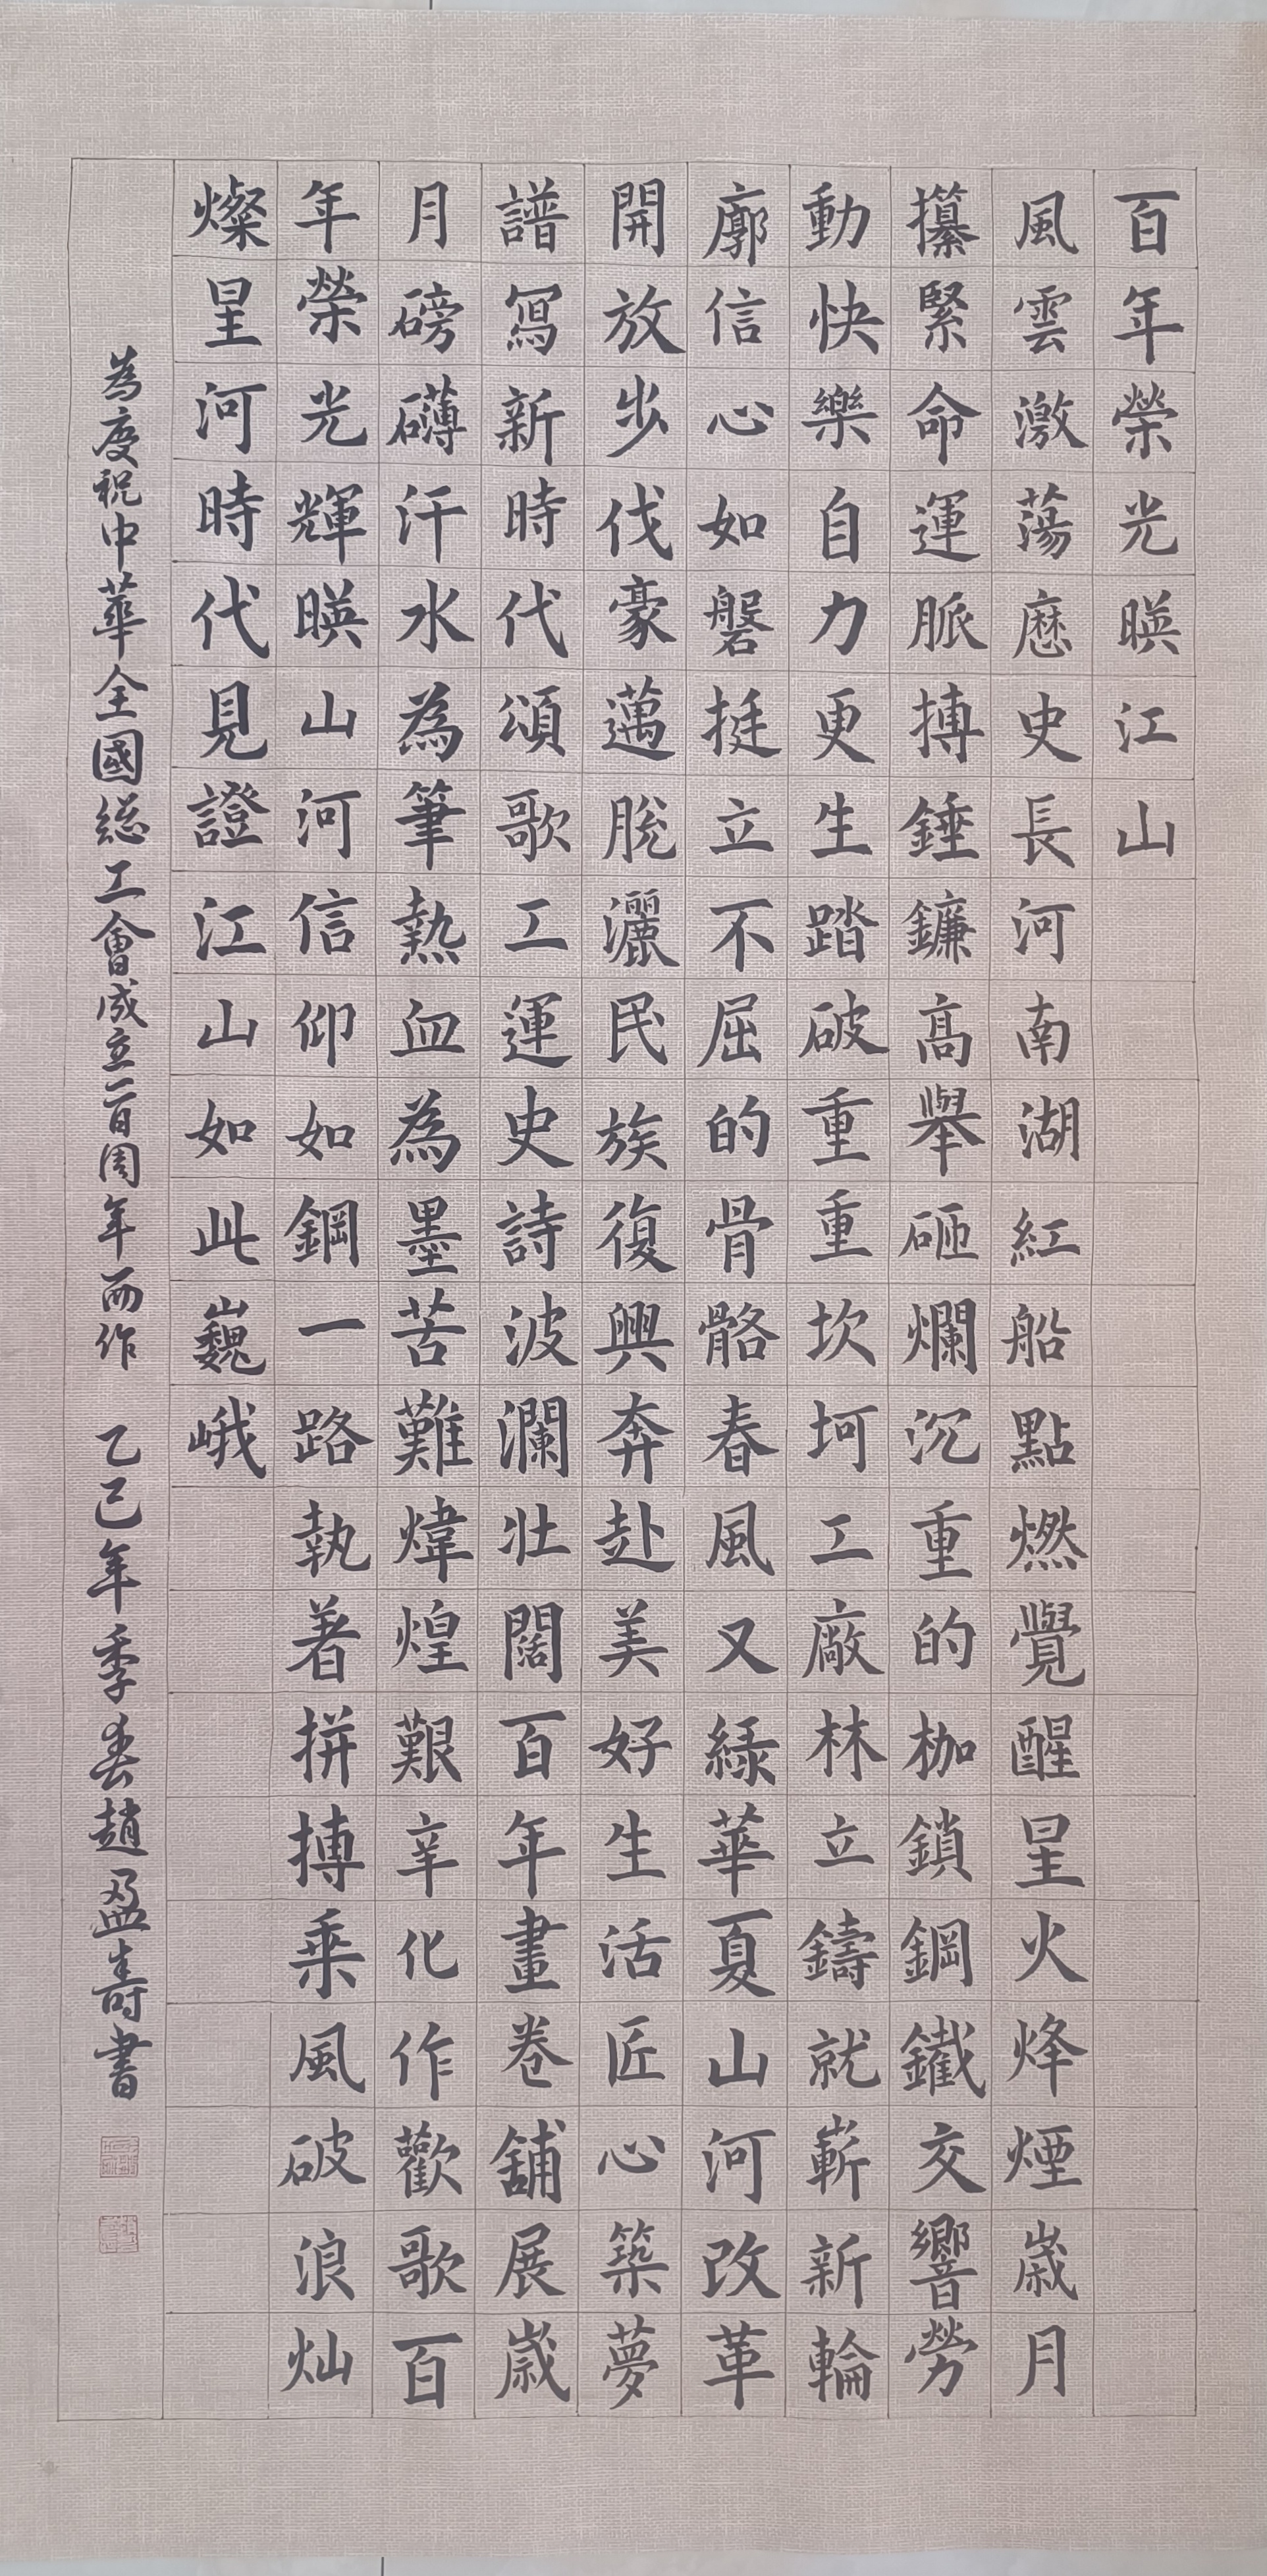 百年榮光暎江山
風雲激蕩歷史長河南湖紅船點燃覺醒星火烽煙嵗月
攥緊命運脈搏錘鐮高舉砸爛沉重的枷鎖鋼鐵交響勞
動快樂自力更生踏破重重坎坷工廠林立鑄就嶄新輪
廓信心如磐挺立不屈的骨骼春風又綠華夏山河改革
開放步伐豪邁脫灑民族復興奔赴美好生活匠心築夢
譜寫新時代頌歌工運史詩波瀾壯闊百年畫卷舖展嵗
月磅礴汗水為筆熱血為墨苦難煒煌艱辛化作歡歌百
年榮光輝暎山河信仰如鋼一路執着拼搏乘風破浪灿
燦星河時代見證江山如此巍峨
為慶祝中華全國總工會成立一百周年而作 乙巳年季春趙盈壽書